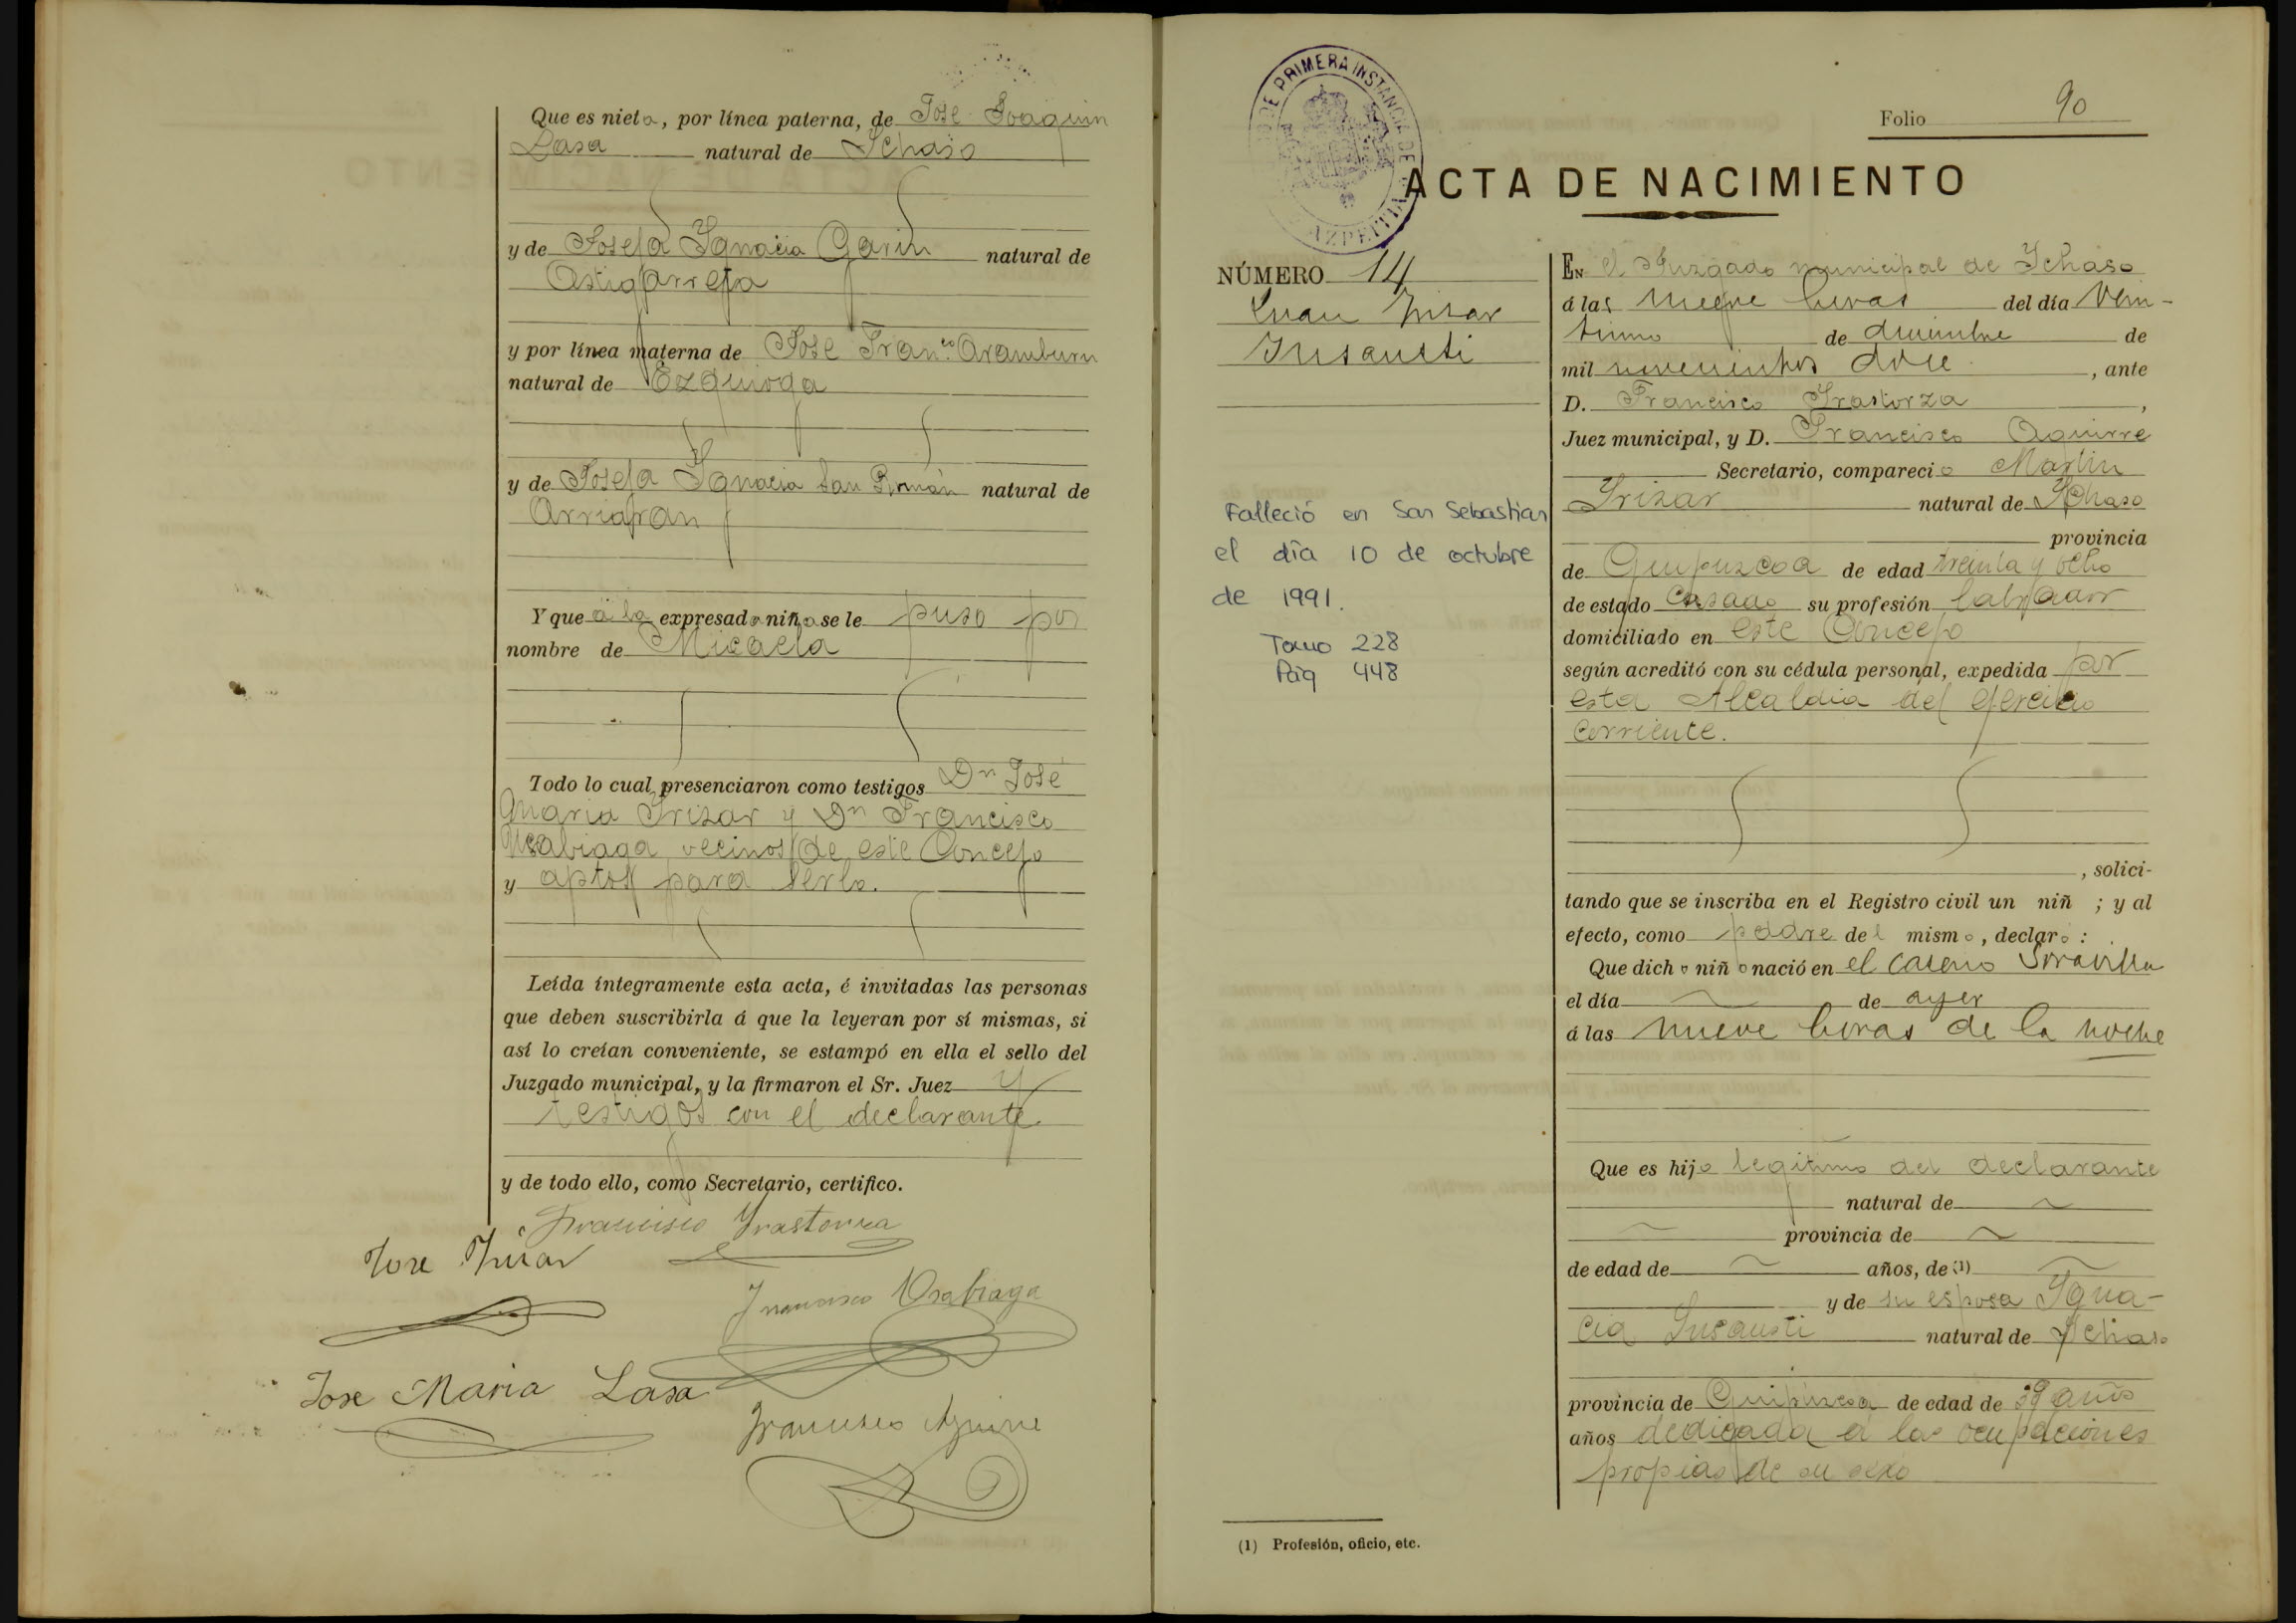 Que es nieta, por línea paterna, de José Joaquin
Lasa natural de Ichaso
y de Josefa Ignacia Garin natural de
Astigarreta
y por línea materna de José Fran.co Aramburu
natural de Ezquioga
y de Josefa Ignacia San Román natural de
Arriaran
Y que a la expresada niña se le puso por
nombre de Micaela
Todo lo cual presenciaron como testigos Dn José
Maria Irizar y Dn Francisco
Usabiaga vecinos de este Concejo
y aptos para serlo.
Leída íntegramente esta acta, é invitadas las personas
que deben suscribirla á que la leyeran por sí mismas, si
así lo creían conveniente, se estampó en ella el sello del
Juzgado municipal, y la firmaron el Sr. Juez y
testigos con el declarante
y de todo ello, como Secretario, certifico.
Francisco Yrastorza
Jose Irizar
Francisco Usabiaga
Jose Maria Lasa
Francisco Aguirre
DE PRIMERA INSTANCIA DE
AZPEITIA
Folio 90
ACTA DE NACIMIENTO
NÚMERO 14
Juan Irizar
Insausti
Falleció en San Sebastian
el día 10 de octubre
de 1991.
Tomo 228
Pág 448
EN el Juzgado municipal de Ichaso
á las nueve horas del día Vein-
tiuno de diciembre de
mil novecientos doce, ante
D. Francisco Irastorza,
Juez municipal, y D. Francisco Aguirre
Secretario, compareció Martin
Irizar natural de Ichaso
provincia
de Guipuzcoa de edad treinta y ocho
de estado casado su profesión labrador
domiciliado en este Concejo
según acreditó con su cédula personal, expedida por
esta Alcaldia del ejercicio
corriente.
, solici-
tando que se inscriba en el Registro civil un niñ ; y al
efecto, como padre del mismo, declaró:
Que dicho niño nació en el caserio
el día de ayer
á las nueve horas de la noche
Que es hijo legitimo del declarante
natural de
provincia de
de edad de años, de (1)
y de su esposa Igna-
cia Insausti natural de Ichaso
provincia de Guipuzcoa de edad de 39 años
años dedicada a las ocupaciones
propias de su sexo
(1) Profesión, oficio, etc.